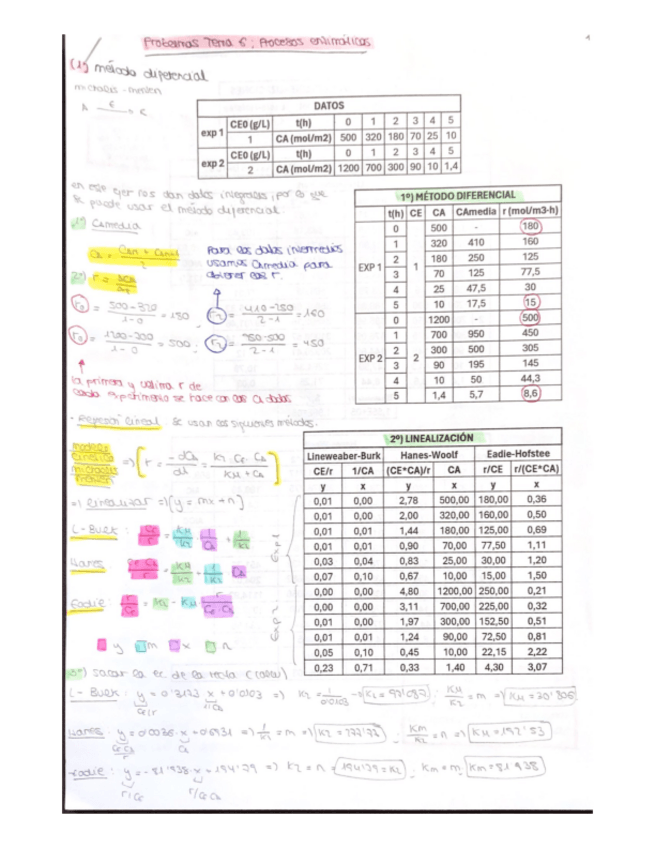 Problemas Tema 6: Procesos enzimáticos
(1) método diferencial
michaelis-menten
A E→ C
DATOS
exp 1 CE0 (g/L) t(h) 0 1 2 3 4 5
1 CA (mol/m2) 500 320 180 70 25 10
exp 2 CE0 (g/L) t(h) 0 1 2 3 4 5
2 CA (mol/m2) 1200 700 300 90 10 1,4
en este ejer nos dan datos integrales, por lo que
se puede usar el método diferencial
1º) CAmedia
Para los datos intermedios
usamos CAmedia para
obtener las r.
2º) r =
r0 = 500-320 / 1-0 = 180 r2 = 410-250 / 2-1 = 160
r0 = 1200-700 / 1-0 = 500 r2 = 950-500 / 2-1 = 450
la primera y última r de
cada experimento se hace con las CA dadas
1º) MÉTODO DIFERENCIAL
t(h) CE CA CAmedia r (mol/m3·h)
EXP 1 1
0 500 - 180
1 320 410 160
2 180 250 125
3 70 125 77,5
4 25 47,5 30
5 10 17,5 15
EXP 2 2
0 1200 - 500
1 700 950 450
2 300 500 305
3 90 195 145
4 10 50 44,3
5 1,4 5,7 8,6
- Regresión lineal se usan los siguientes métodos.
modelo
cinético
michaelis
menten
⇒ [r = -dCA / dt = k2 · CE · CA / KM + CA]
⇒ linealizar ⇒ [y = mx + n]
L-Burk: CE / r = KM / k2 · 1 / CA + 1 / k2
Hanes CE CA / r = KM / k2 + 1 / k2 · CA
Eadie: r / CE = k2 - KM r / CE CA
y m x n
Exp 1
Exp 2
2º) LINEALIZACIÓN
Lineweaber-Burk Hanes-Woolf Eadie-Hofstee
CE/r 1/CA (CE*CA)/r CA r/CE r/(CE*CA)
y x y x y x
0,01 0,00 2,78 500,00 180,00 0,36
0,01 0,00 2,00 320,00 160,00 0,50
0,01 0,01 1,44 180,00 125,00 0,69
0,01 0,01 0,90 70,00 77,50 1,11
0,03 0,04 0,83 25,00 30,00 1,20
0,07 0,10 0,67 10,00 15,00 1,50
0,00 0,00 4,80 1200,00 250,00 0,21
0,00 0,00 3,11 700,00 225,00 0,32
0,01 0,00 1,97 300,00 152,50 0,51
0,01 0,01 1,24 90,00 72,50 0,81
0,05 0,10 0,45 10,00 22,15 2,22
0,23 0,71 0,33 1,40 4,30 3,07
3º) sacar la ec. de la recta
L-Burk: y = 0'3123 x + 0'0103 ⇒ k2 = 1 / 0'0103 → k2 = 97'087 ; KM / k2 = m ⇒
Hanes: y = 0'0036 · x + 0'6931 ⇒ 1 / k2 = m ⇒ k2 = 277'77 ; Km / k2 = n ⇒ KM = 192'53
Eadie: y = -81'938 · x + 194'29 ⇒ k2 = n = 194'29 = k2 ; Km = m Km = 81'938
r/CE r/CE CA